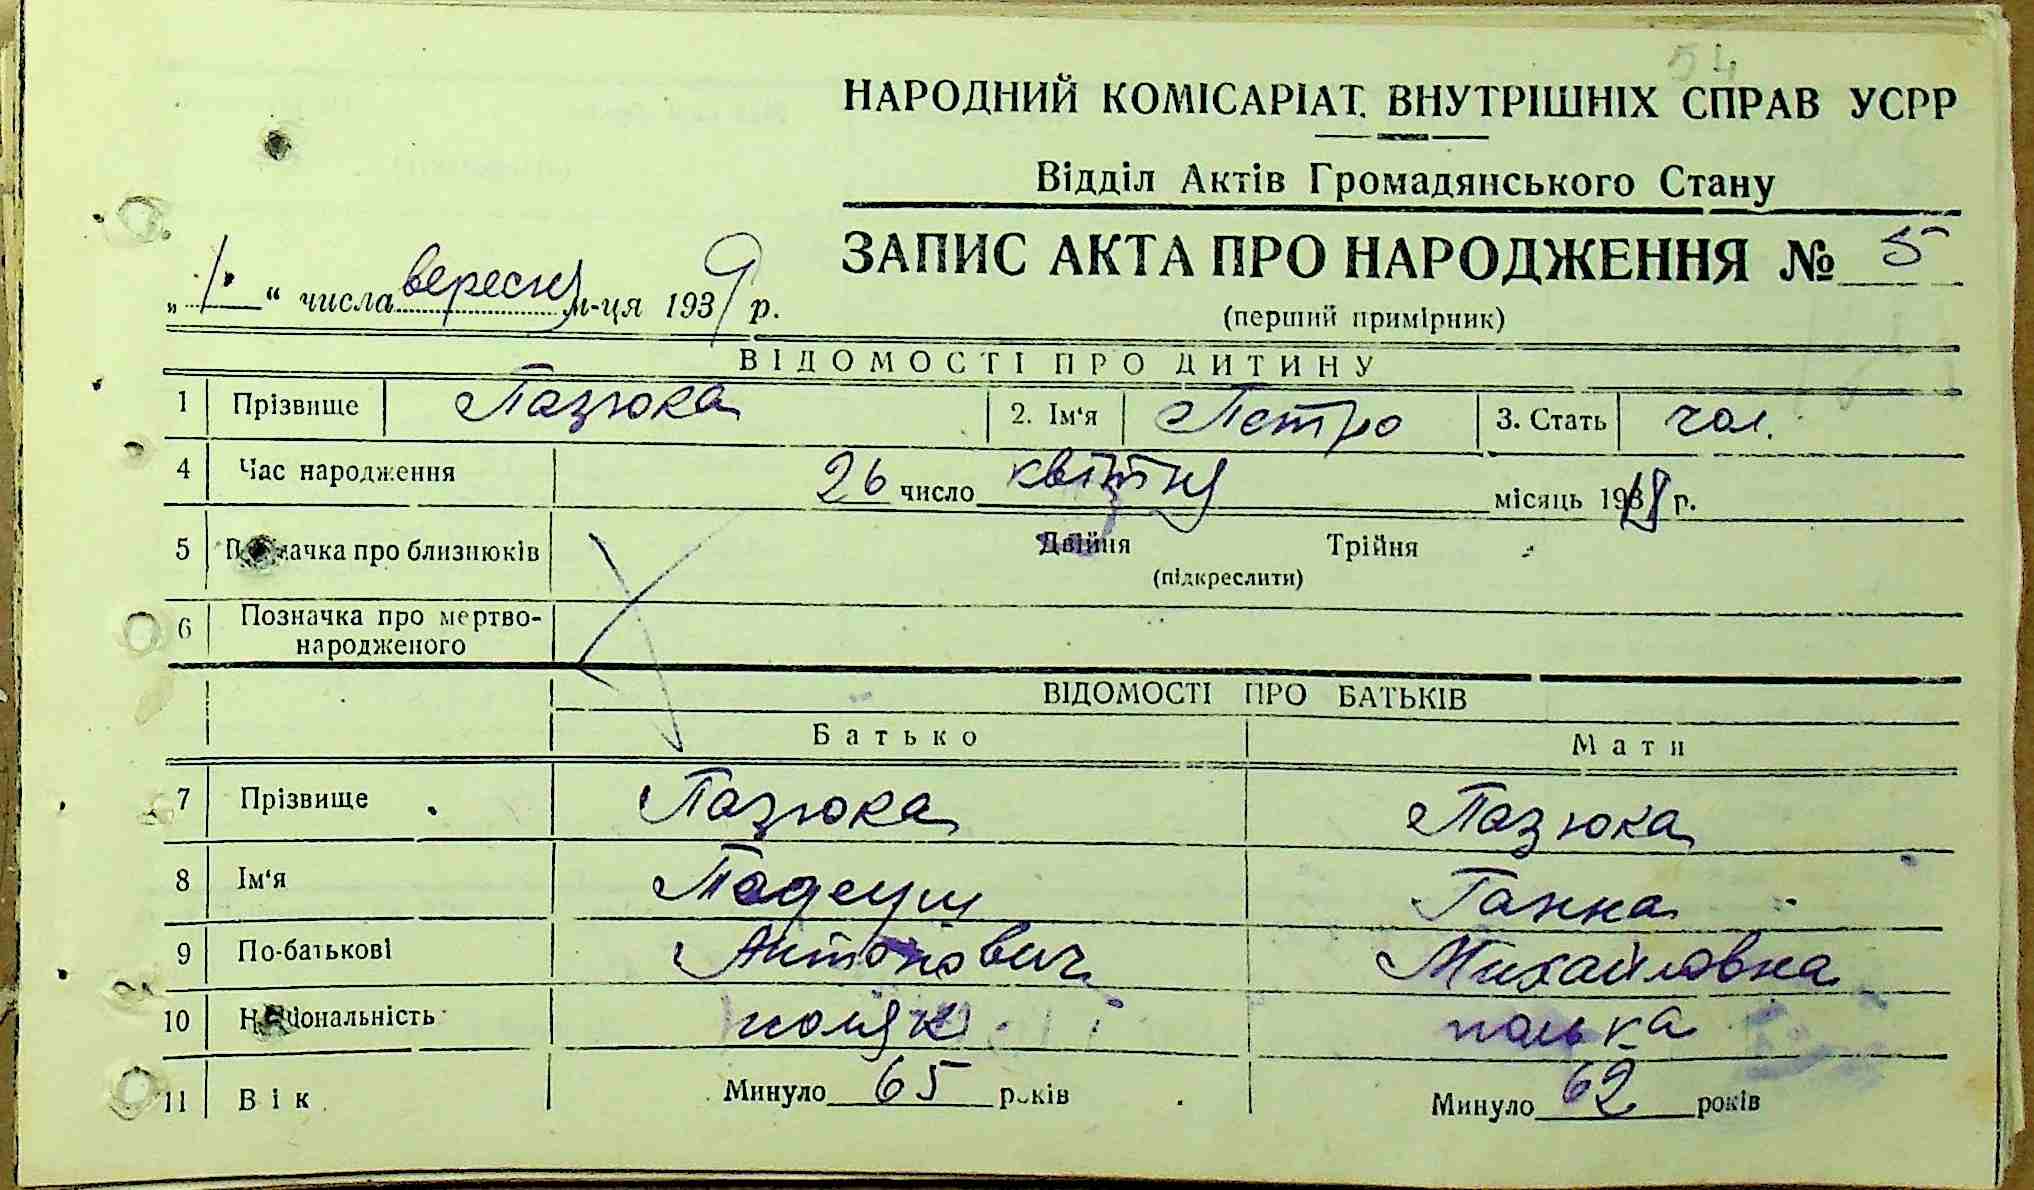 54
НАРОДНИЙ КОМІСАРІАТ ВНУТРІШНІХ СПРАВ УСРР
Відділ Актів Громадянського Стану
ЗАПИС АКТА ПРО НАРОДЖЕННЯ № 5
„1“ числа вересня м-ця 1939 р.
(перший примірник)
ВІДОМОСТІ ПРО ДИТИНУ
1 Прізвище Пазюка 2. Ім'я Петро 3. Стать чол.
4 Час народження 26 число квітня місяць 1918 р.
5 Позначка про близнюків Двійня Трійня
(підкреслити)
6 Позначка про мертво-
народженого
ВІДОМОСТІ ПРО БАТЬКІВ
Батько Мати
7 Прізвище Пазюка Пазюка
8 Ім'я Тадеуш Ганна
9 По-батькові Антонович Михайловна
10 Національність поляк полька
11 Вік Минуло 65 років Минуло 62 років